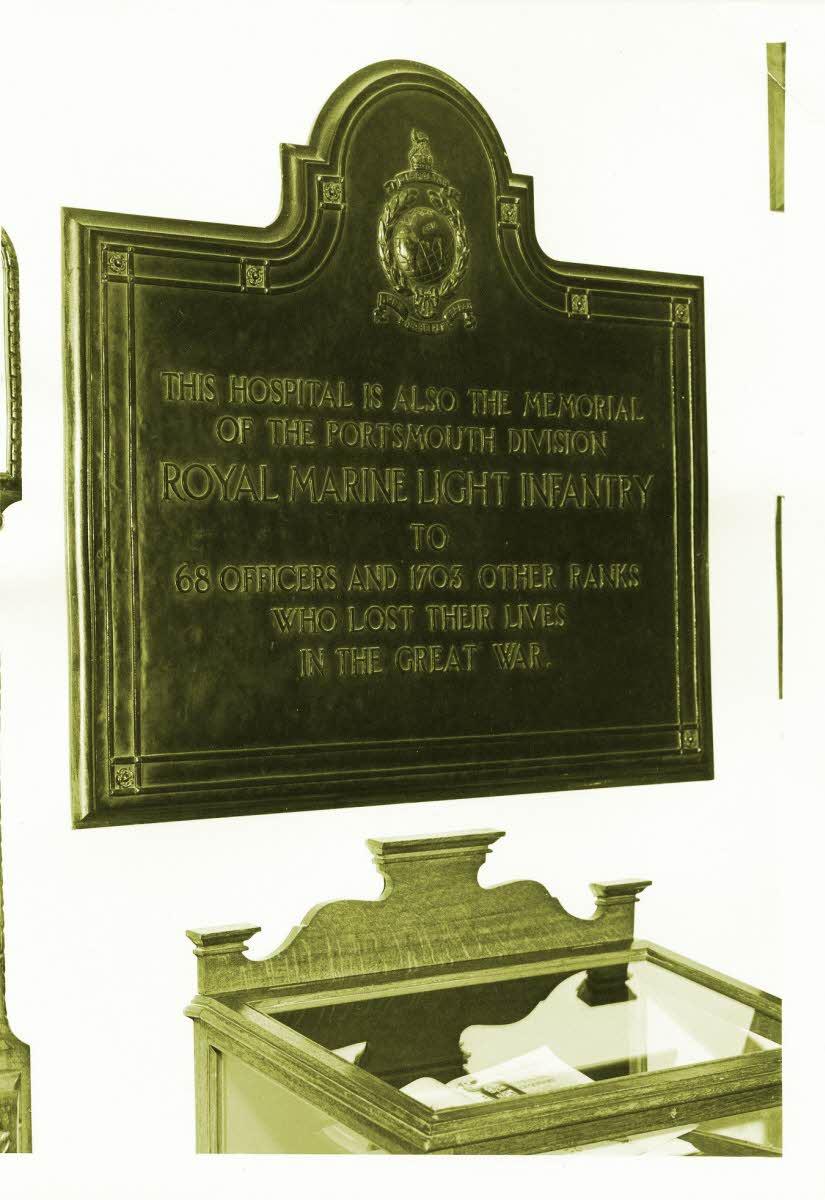 THIS HOSPITAL IS ALSO THE MEMORIAL
OF THE PORTSMOUTH DIVISION
ROYAL MARINE LIGHT INFANTRY
TO
68 OFFICERS AND 1703 OTHER RANKS
WHO LOST THEIR LIVES
IN THE GREAT WAR.